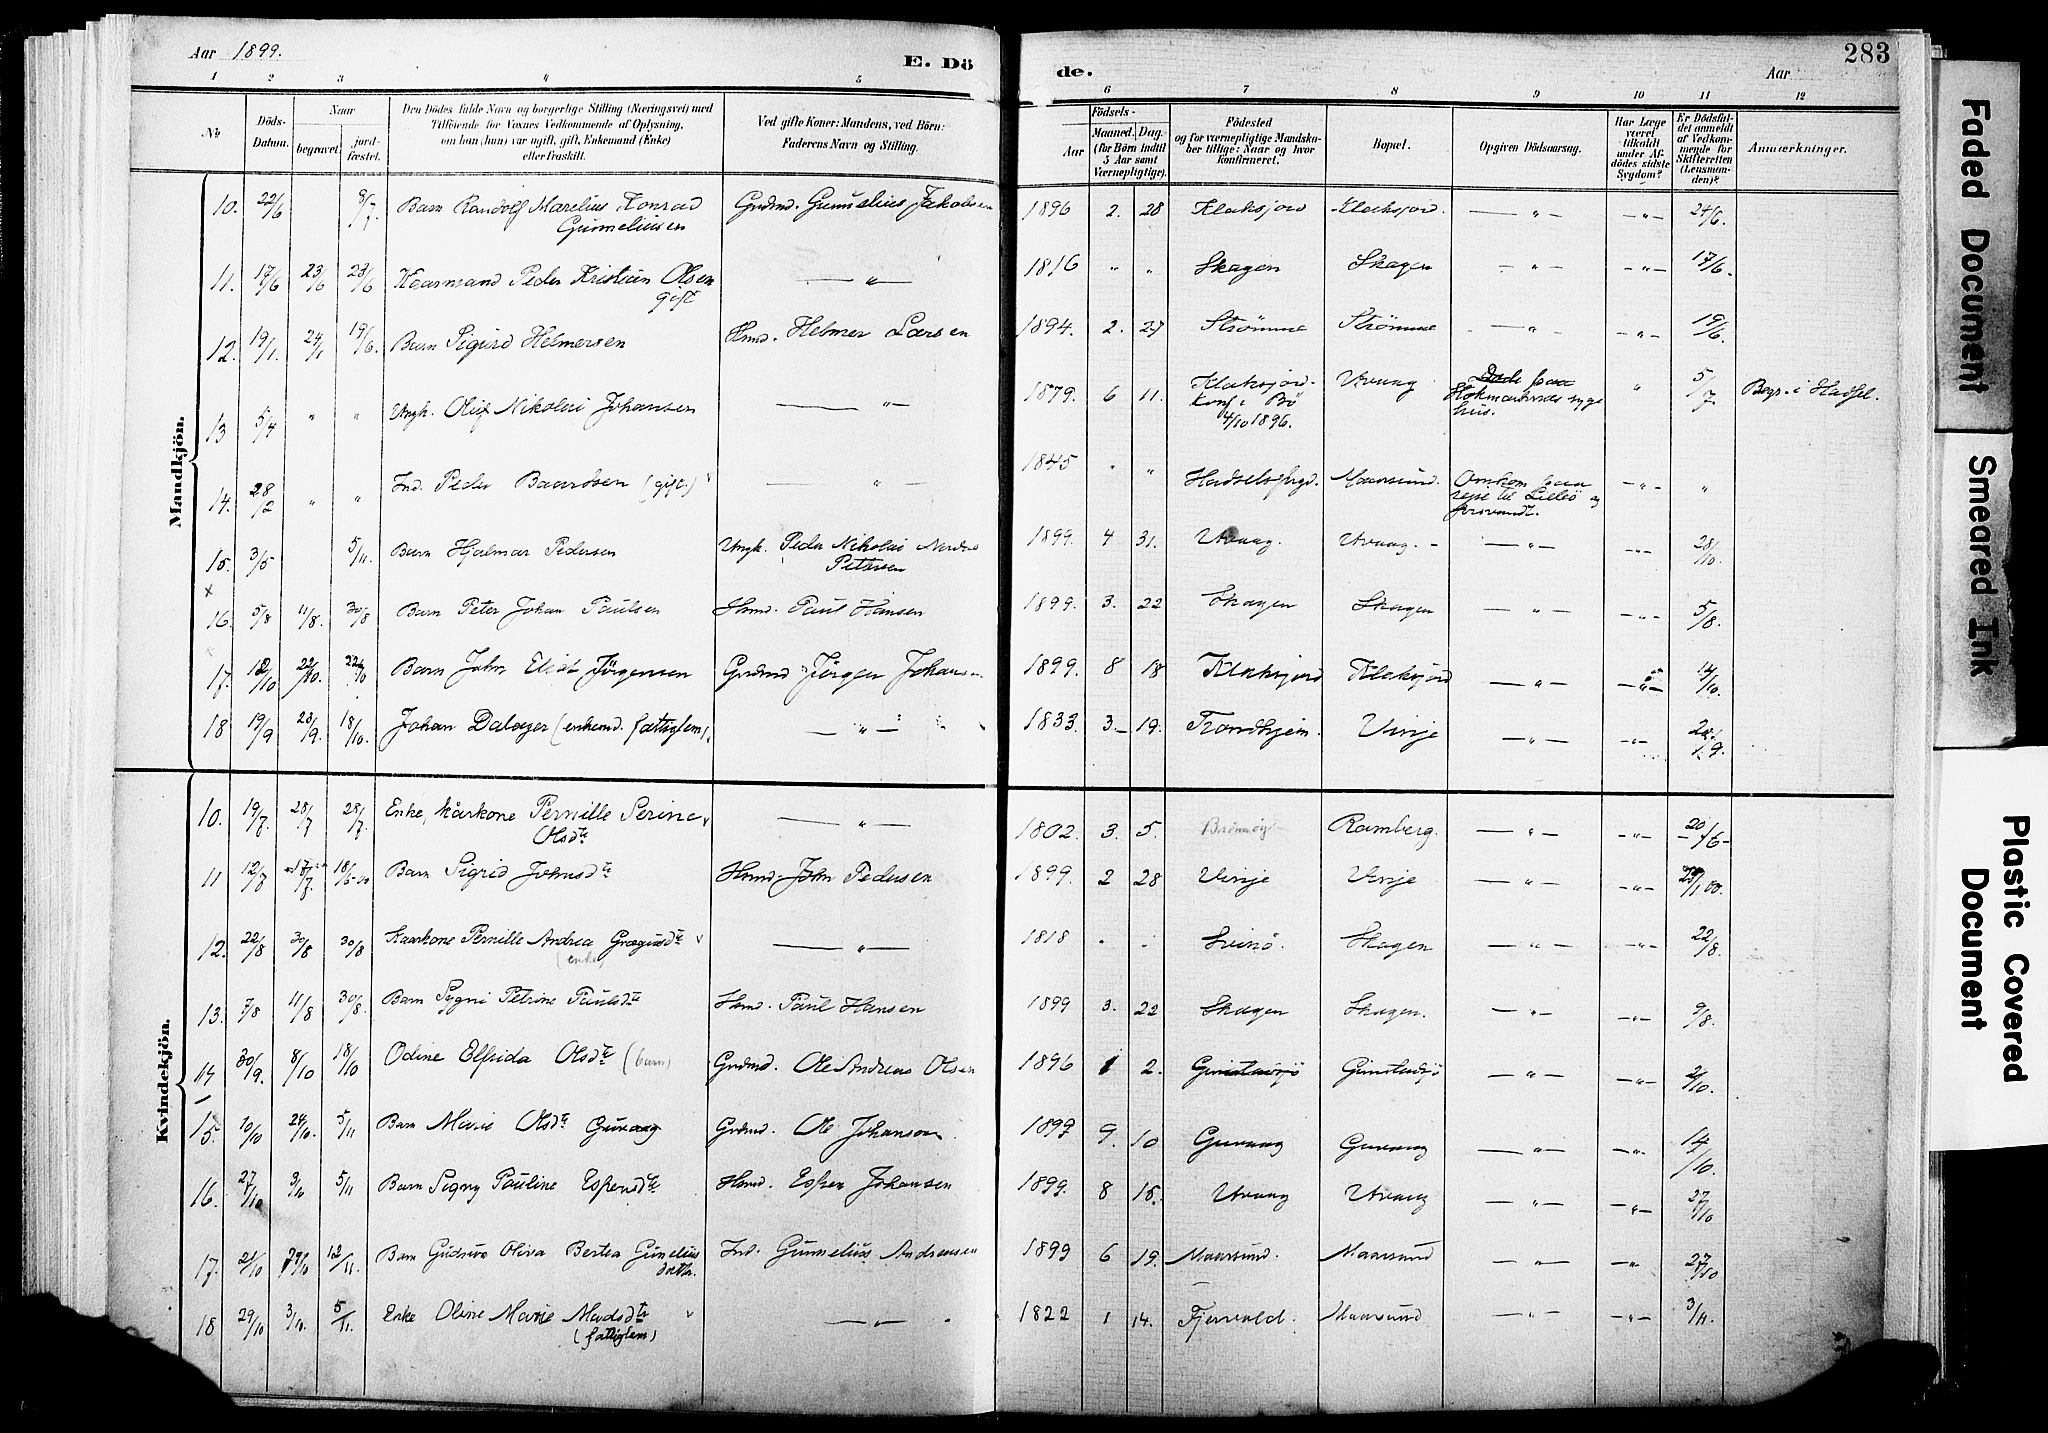 Aar 1899.
E. Dö
de.
Aar
283
1 2 3 4 5 6 7 8 9 10 11 12
No
Döds-
Datum.
Naar
begravet.
jord-
fæstet.
Den Dödes fulde Navn og borgerlige Stilling (Næringsvei) med
Tilföiende for Voxnes Vedkommende af Oplysning,
om han (hun) var ugift, gift, Enkemand (Enke)
eller fraskilt.
Ved gifte Koner: Mandens, ved Börn:
Faderens Navn og Stilling.
Födsels-
Aar
Maaned.
Dag.
(for Börn indtil
5 Aar samt
Værnepligtige).
Födested
og for værnepligtige Mandska-
ber tillige: Naar og hvor
konfirmeret.
Bopæl.
Opgiven Dödsaarsag.
Har Læge
været
tilkaldt
under Af-
dödes sidste
Sygdom?
Er Dödsfal-
det anmeldt
af Vedkom-
mende for
Skifteretten
(Lensman-
den)?
Anmærkninger.
Mandkjön.
10. 22/6 8/7 Barn Randolf Marelius Konrad Gunneliussen Grdmd. Gunnelius Jakobsen 1896 2. 28 Klaksjord Klaksjord. — " — — " — 24/6.
11. 17/6 23/6 23/6 Kaarmand Peder Kristian Olsen gift — " — 1816 " " Skagen Skagen — " — — " — 17/6.
12. 19/1. 24/1 19/6. Barn Sigurd Helmersen Hmd. Helmer Larsen 1894. 2. 27 Strømme Strømme — " — — " — 19/6.
13 5/4 " " Ungk. Oluf Nikolai Johansen — " — 1879. 6 11. Klaksjord. Konf. i Bö 4/10 1896. Utvaag Døde paa Stokmarknes syge hus. " 5/7. Begr. i Hadsel.
14. 28/2 " " Ind. Peder Baardsen (gift.) — " — 1845 " " Maarsund. Omkom paa reise til Lillesö og forsvandt. — " — "
15. 3/5 5/11. Barn Hjalmar Pedersen Ungk. Peder Nikolai Petersen 1899. 4 31. Utvaag. Utvaag. — — " — — " — 28/10.
x
16. 5/8 11/8. 30/8 Barn Peter Johan Paulsen Hmd. Paul Hansen 1899. 3. 22 Skagen Skagen — " — — " — 5/8.
17. 12/10 22/10. 22/10 Barn John Jørgensen Grdmd Jörgen Johansen 1899. 8 18 Klaksjord Klaksjord — " — — " — 14/10.
18 19/9 23/9. 18/10. Johan Dalager (enkemd. fattiglem). — " — 1833. 3 19. Trondhjem. Vinje — " — — " —
Kvindekjön.
10. 19/7. 28/7 28/7. Enke, kårkone Pernille Serine Olsdtr — " — 1802. 3. 5. Brönnöy Ramberg. — " — — " — 20/6
11 12/7 17/7. Barn Sigrid Johnsdtr Hmd. John Pedersen 1899. 2 28 Vinje Vinje — " — — " —
12. 22/8 30/8 30/8 Kaarkone Pernille Andrea Gregersdtr (enke) — " — 1818 " " Svinö. Skagen — " — — " — 22/8.
13. 7/8 11/8 30/8. Barn Sygni Petrine Paulsdtr Hmd. Paul Hansen 1899 3. 22 Skagen Skagen. — " — — " — 9/8.
14 30/9. 8/10 18/10 Odine Elfrida Olsdtr (barn) Grdmd. Ole Andreas Olsen 1896 1 2. Guvstadsjö Guvstadsjö — " — — " — 2/10.
15. 10/10 24/10. 5/11 Barn Marie Olsdtr Guvaag Grdmd. Ole Johanson. 1897 9. 10 Guvaag Guvaag — " — — " — 14/10.
16. 27/10 3/10 5/11 Barn Signy Pauline Espensdtr Hmd. Espen Johansen 1899. 8 15. Utvaag Utvaag — " — — " — 27/10
17. 21/10 29/10 12/11. Barn Gudrun Oliva Bertea Gunelius datter. Ind. Gunnelius Andreasen 1899 6 19. Maarsund. Maarsund — " — — " — 27/10
18 29/10 3/11. 5/11. Enke Oline Marie Madsdtr (fattiglem) — " — 1822 1 14. Fjærvold. Maarsund — " — — " — 3/11.
Faded Document
Smeared Ink
Plastic Covered
Document